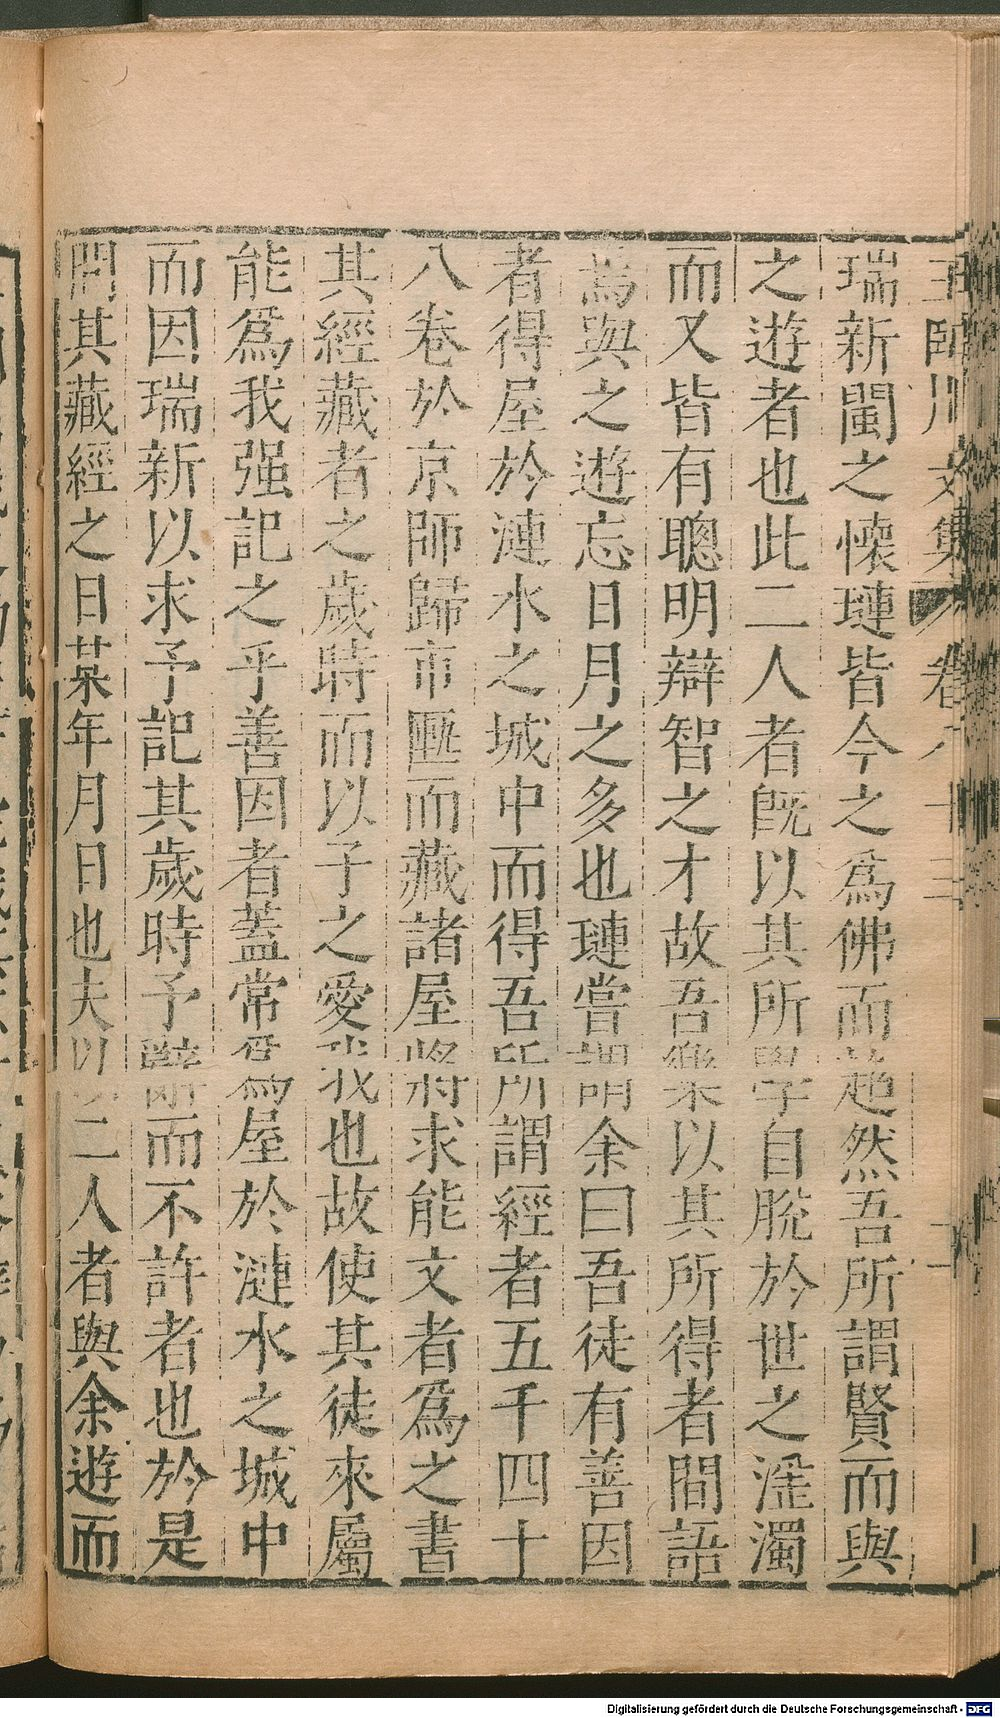 王臨川文集 卷八十三 二十
瑞新閩之懷璉皆今之爲佛而超然吾所謂賢而與
之遊者也此二人者旣以其所學自脫於世之淫濁
而又皆有聰明辯智之才故吾樂以其所得者間語
焉與之遊忘日月之多也璉嘗謂余曰吾徒有善因
者得屋於漣水之城中而得吾所謂經者五千四十
八卷於京師歸市匭而藏諸屋將求能文者爲之書
其經藏者之歲時而以子之愛我也故使其徒來屬
能爲我强記之乎善因者蓋常爲屋於漣水之城中
而因瑞新以求予記其歲時予辭而不許者也於是
問其藏經之日某年月日也夫以二人者與余遊而
Digitalisierung gefördert durch die Deutsche Forschungsgemeinschaft - DFG